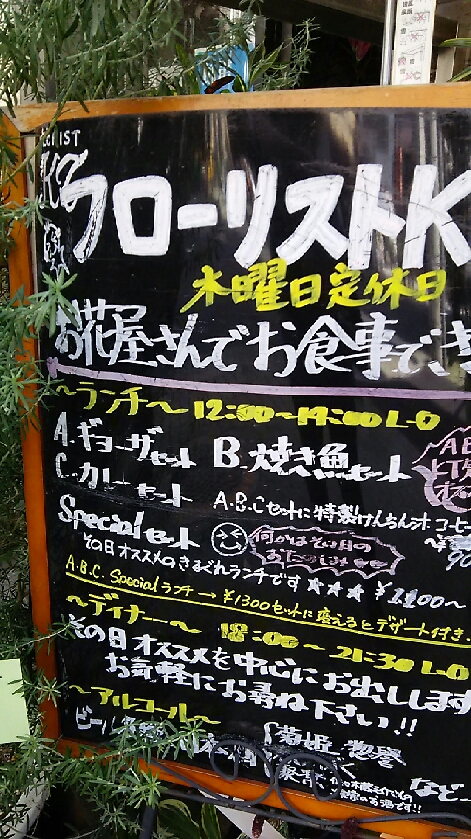 フローリストK
木曜日定休日
お花屋さんでお食事でき
～ランチ～ 12:00～14:00 L-O
A.ギョーザセット B.焼き魚セット
C.カレーセット
A.B.Cセットに特製けんちん汁 コーヒー
Specialセット 何かはその日のおたのしみ
その日オススメのきまぐれランチです ★★★ ¥1100～
A.B.C. Specialランチ → ¥1300セットに変えるとデザート付き
～ディナー～ 18:00～21:30 L-O
その日オススメを中心にお出しします
お気軽にお尋ね下さい!!
～アルコール～
ビール
菊姫 惣誉
など